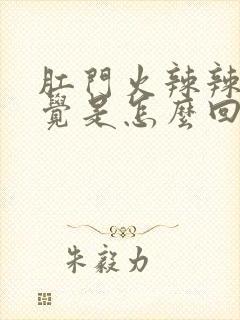 肛門火辣辣
覺是怎麼回
朱毅力